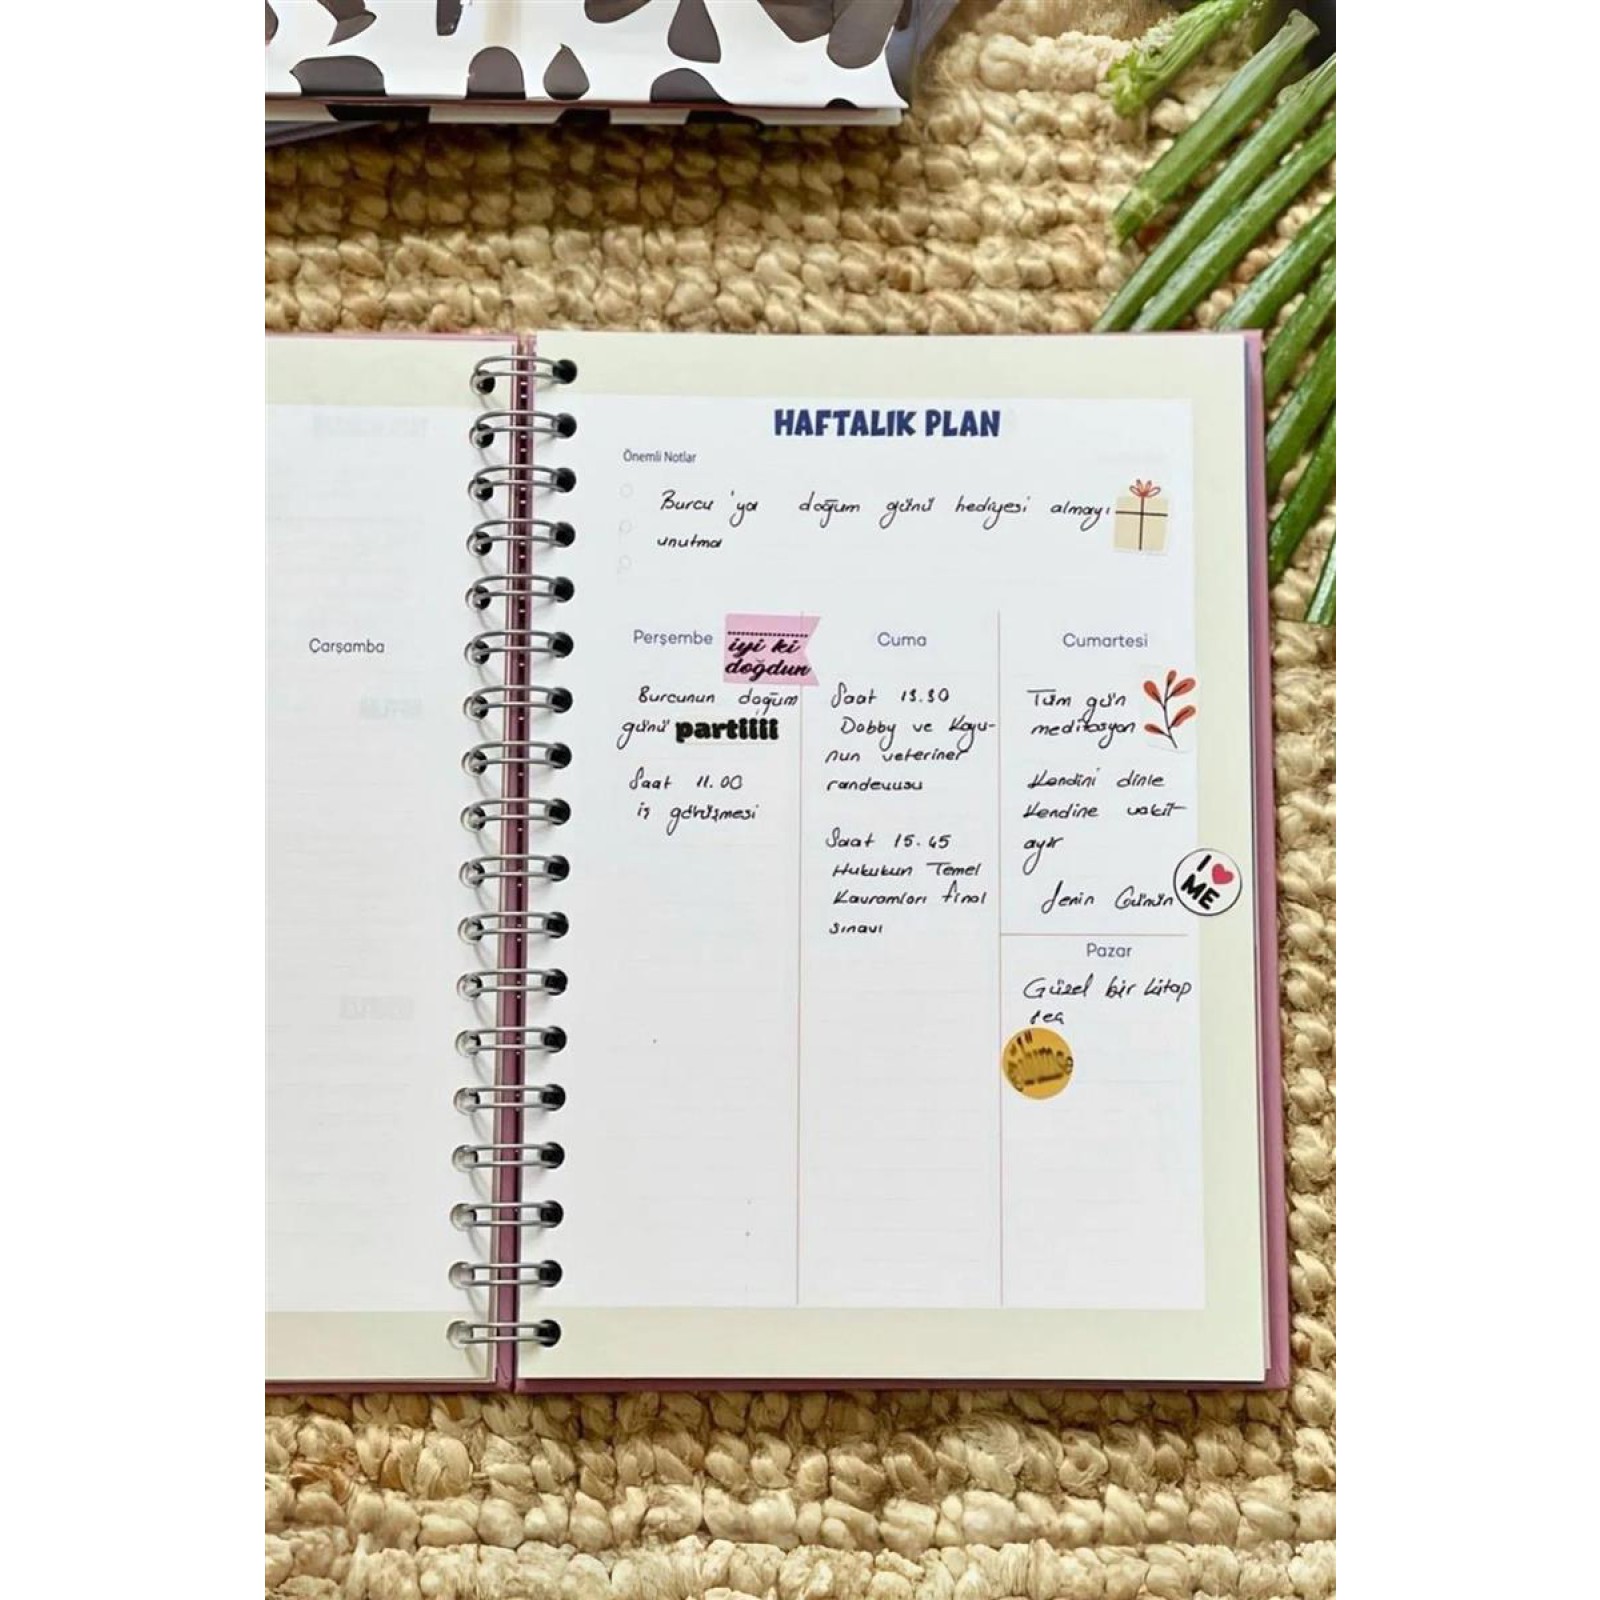 HAFTALIK PLAN
Önemli Notlar
Burcu'ya doğum günü hediyesi almayı
unutma
Çarşamba
Perşembe
iyi ki
doğdun
Burcunun doğum
günü partiiii
Saat 11.00
iş görüşmesi
Cuma
Saat 13.30
Dobby ve Koyu-
nun veteriner
randevusu
Saat 15.45
Hukukun Temel
Kavramları final
sınavı
Cumartesi
Tüm gün
meditasyon
Kendini dinle
Kendine vakit
ayır
Senin Günün
I ME
Pazar
Güzel bir kitap
seç